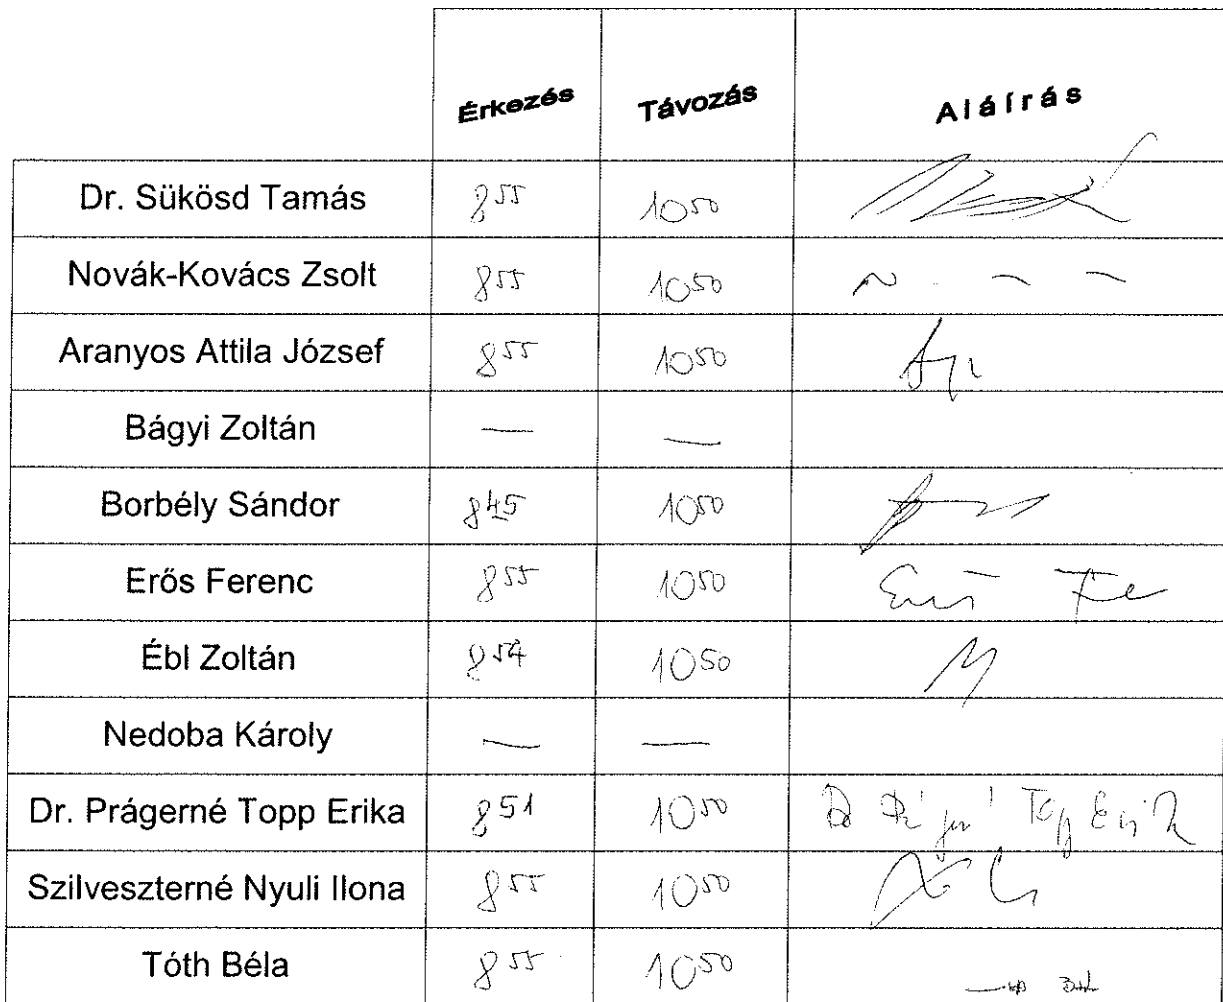 Érkezés Távozás Aláírás
Dr. Sükösd Tamás 8⁵⁵ 10⁵⁰
Novák-Kovács Zsolt 8⁵⁵ 10⁵⁰
Aranyos Attila József 8⁵⁵ 10⁵⁰
Bágyi Zoltán — —
Borbély Sándor 8⁴⁵ 10⁵⁰
Erős Ferenc 8⁵⁵ 10⁵⁰
Ébl Zoltán 8⁵⁴ 10⁵⁰
Nedoba Károly — —
Dr. Prágerné Topp Erika 8⁵¹ 10⁵⁰
Szilveszterné Nyuli Ilona 8⁵⁵ 10⁵⁰
Tóth Béla 8⁵⁵ 10⁵⁰